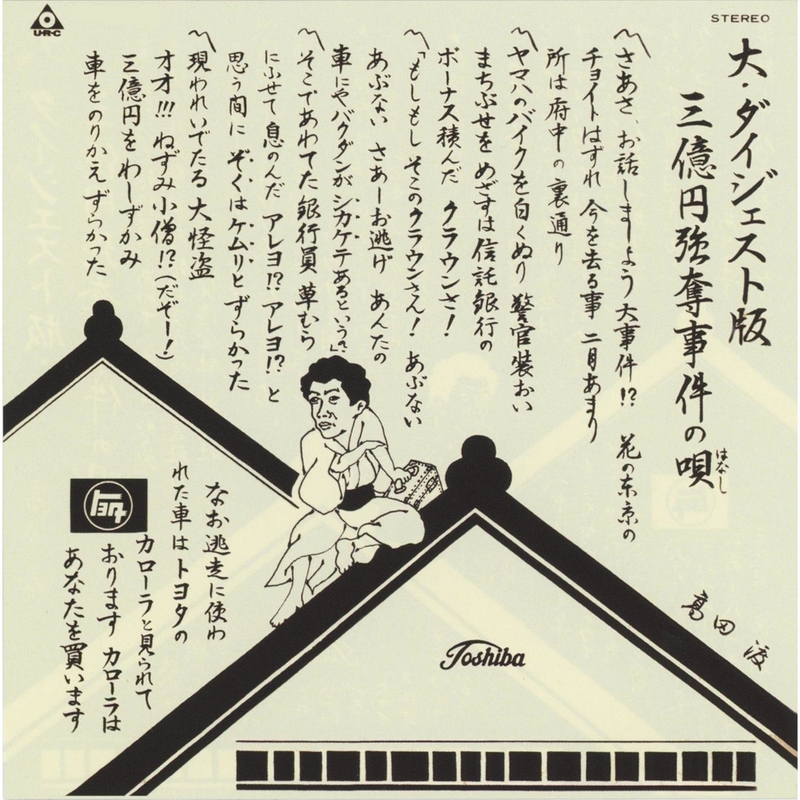 U·R·C
STEREO
大・ダイジェスト版
三億円強奪事件の唄
はなし
高田渡
さあさ、お話しましょう 大事件!? 花の東京の
チョイトはずれ 今を去る事 二月あまり
所は府中の裏通り
ヤマハのバイクを白くぬり 警官装おい
まちぶせを めざすは信託銀行の
ボーナス積んだ クラウンさ!
「もしもし そこのクラウンさん! あぶない
あぶない さあーお逃げ あんたの
車にやバクダンが シカケテあるという」
そこであわてた銀行員 草むら
にふせて 息のんだ アレヨ!? アレヨ!? と
思う間に ぞくはケムリと ずらかった
現われいでたる 大怪盗
オオ!!! ねずみ小僧!? (だぞー!)
三億円を わしずかみ
車をのりかえ ずらかった
なお逃走に使わ
れた車は トヨタの
カローラと見られて
おります カローラは
あなたを買います
トヨタ
Toshiba